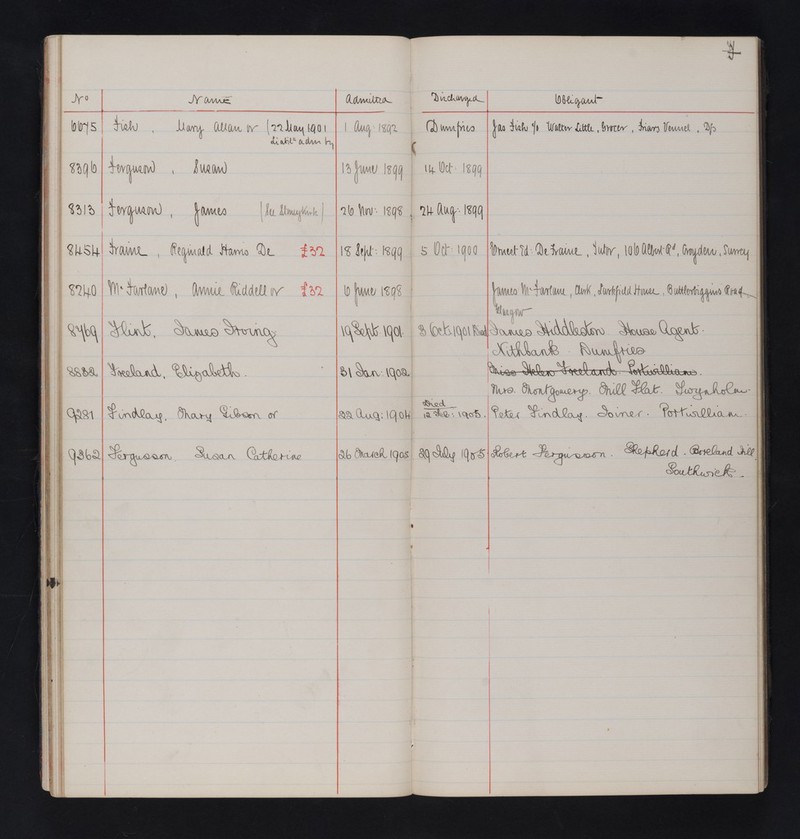 F
No Name Admitted Discharged Obligant
6675 Fish, Mary Allan or (22 May 1901 1 Aug: 1892 Dumfries Jas Fish c/o Walter Little, Grocer, Friars Vennel, D/s
8396 Ferguson, Susan 13 June 1899 14 Oct: 1899
8313 Ferguson, James (See Stoneykirk) 26 Nov: 1898 24 Aug: 1899
8454 Fraine, Reginald Harris De £32 18 Sept: 1899 5 Oct: 1900 Ernest Ed: De Fraine, Tutor, 106 Albert Rd, Croydon, Surrey
8240 McFarlane, Annie Riddell or £32 6 June 1898 James McFarlane, Clerk, House, Road
Glasgow
8769 Flint, James Irving 19 Sept 1901 8 Oct: 1901 Died James Hiddleston House Agent.
Nithbank Dumfries
8882 Freeland, Elizabeth. 31 Jan: 1902 Miss Helen Freeland Portwilliam.
Mrs. Montgomery. Mill Flat. Twynholm.
Died
9281 Findlay, Mary Gibson or 22 Aug: 1904 1905. Peter Findlay. Joiner. Portwilliam.
9362 Fergusson Susan Catherine 26 March 1905 29 July 1905 Robert Fergusson. Shepherd. Boreland Hill
Southwick.